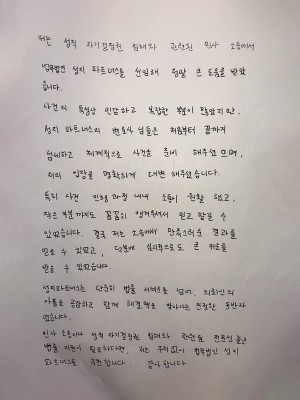 저는 성적 자기결정권 침해와 관련된 민사 소송에서
법무법인 성지 파트너스를 선임해 정말 큰 도움을 받았
습니다.
사건의 특성상 민감하고 복잡한 부분이 많았지만,
성지 파트너스의 변호사 님들은 처음부터 끝까지
섬세하고 체계적으로 사건을 준비 해주셨으며,
저의 입장을 명확하게 대변 해주셨습니다.
특히 사건 진행 과정 내내 소통이 원활 했고,
작은 부분까지도 꼼꼼히 챙겨주셔서 믿고 맡길 수
있었습니다. 결국 저는 소송에서 만족스러운 결과를
얻을 수 있었고, 덕분에 심리적으로도 큰 위로를
받을 수 있었습니다.
성지파트너스는 단순히 법률 서비스를 넘어, 의뢰인의
아픔을 공감하고 함께 해결책을 찾아가는 진정한 동반자
였습니다.
민사 소송이나 성적 자기결정권 침해와 관련된 전문성 높은
법률 지원이 필요하다면, 저는 주저없이 법무법인 성지
파트너스를 추천합니다. 감사합니다